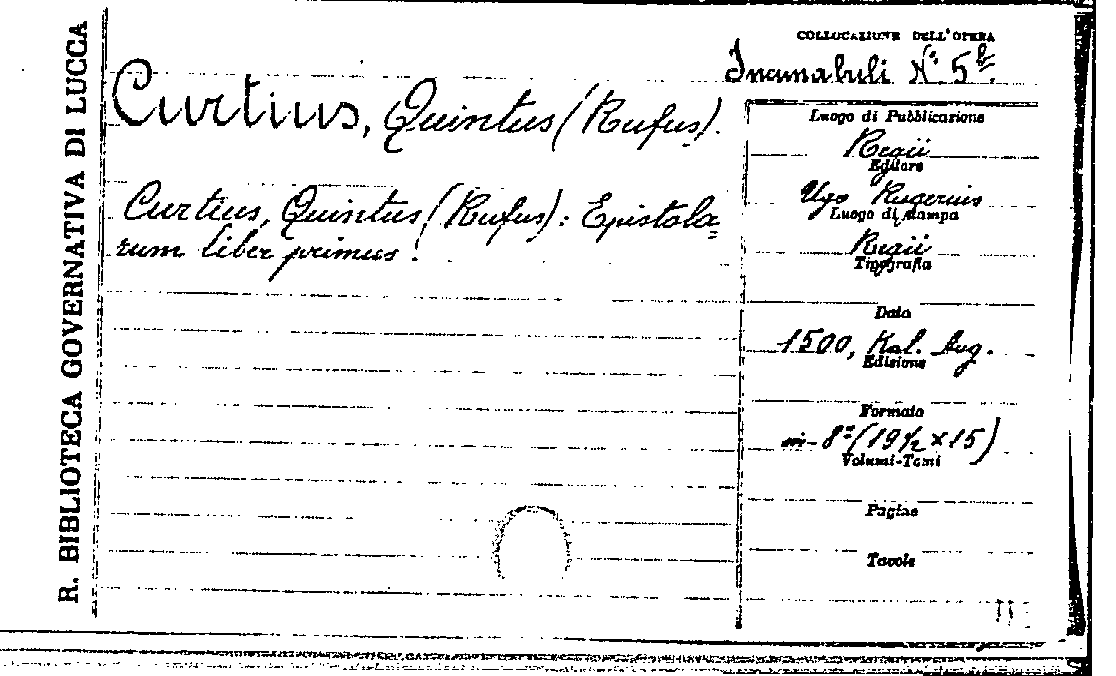 R. BIBLIOTECA GOVERNATIVA DI LUCCA
COLLOCAZIONE DELL'OPERA
Incunabuli N.° 5
Curtius, Quintus (Rufus).
Curtius, Quintus (Rufus): Epistola=
rum liber primus.
Luogo di Pubblicazione
Regii
Editore
Ugo Rugerius
Luogo di stampa
Regii
Tipografia
Data
1500, Kal. Aug.
Edizione
Formato
in-8° (19½ × 15)
Volumi-Tomi
Pagine
Tavole